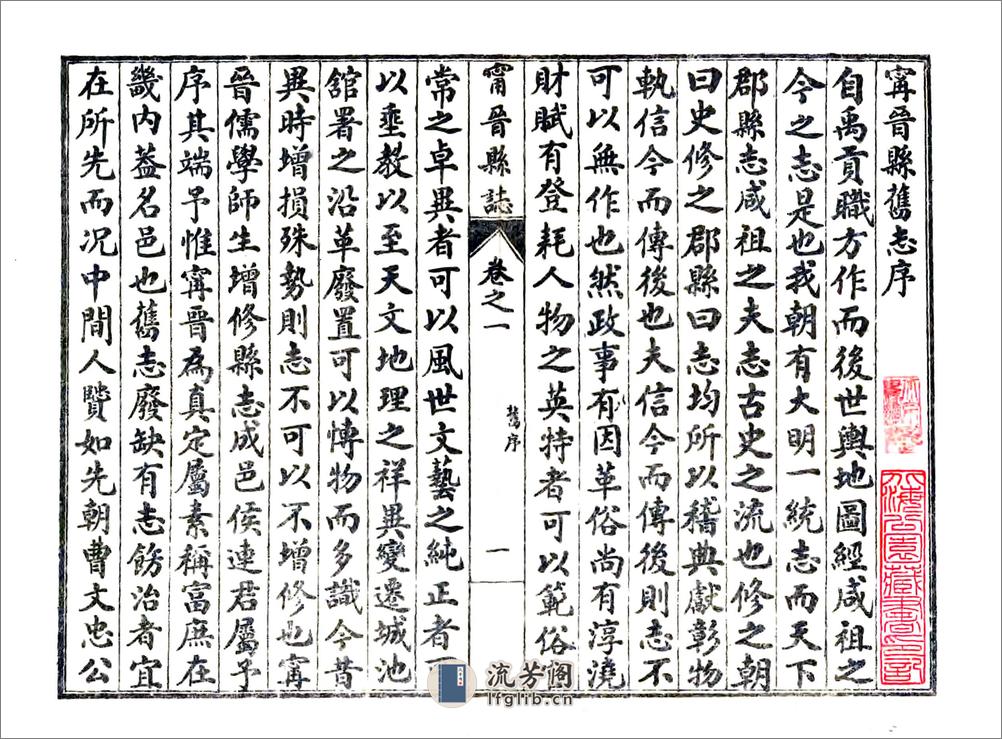 甯晉縣舊志序
自禹貢職方作而後世輿地圖經咸祖之
今之志是也我朝有大明一統志而天下
郡縣志咸祖之夫志古史之流也修之朝
曰史修之郡縣曰志均所以稽典獻彰物
軌信今而傳後也夫信今而傳後則志不
可以無作也然政事有因革俗尚有淳澆
財賦有登耗人物之英特者可以範俗
甯晉縣誌
卷之一
舊序
一
常之卓異者可以風世文藝之純正者可
以垂教以至天文地理之祥異變遷城池
舘署之沿革廢置可以慱物而多識今昔
異時增損殊勢則志不可以不增修也甯
晉儒學師生增修縣志成邑侯連君屬予
序其端予惟甯晉為真定屬素稱富庶在
畿内葢名邑也舊志廢缺有志飭治者宜
在所先而况中間人賢如先朝曹文忠公
流芳阁
lfglib.cn